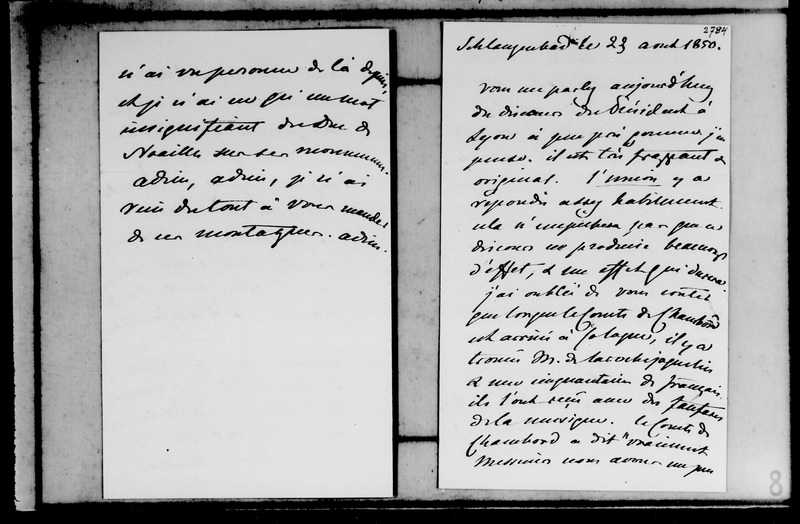 n'ai vu personne de là depuis,
et je n'ai eu qu'un mot
insignifiant du Duc de
Noailles sur ses
adieu, adieu, je n'ai
rien du tout à vous mander
de ces montagnes. adieu.
2784
Schlangenbad le 23 aout 1850.
vous me parlez aujourd'huy
du discours du Président à
Lyon à peu près comme j'en
pense. il est très frappant &
original. l'union y a
répondu assez habilement
cela n'empêchera pas que ce
discours ne produise beaucoup
d'effet, & un effet qui durera.
j'ai oublié de vous conter
que lorsque le Comte de Chambord
est arrivé à Cologne, il y a
trouvé Mr. de larochejaquelin
& une cinquantaine de français.
ils l'ont reçu avec des fanfares
de la musique. le Comte de
Chambord a dit "vraiment
Messieurs nous avons un peu
8